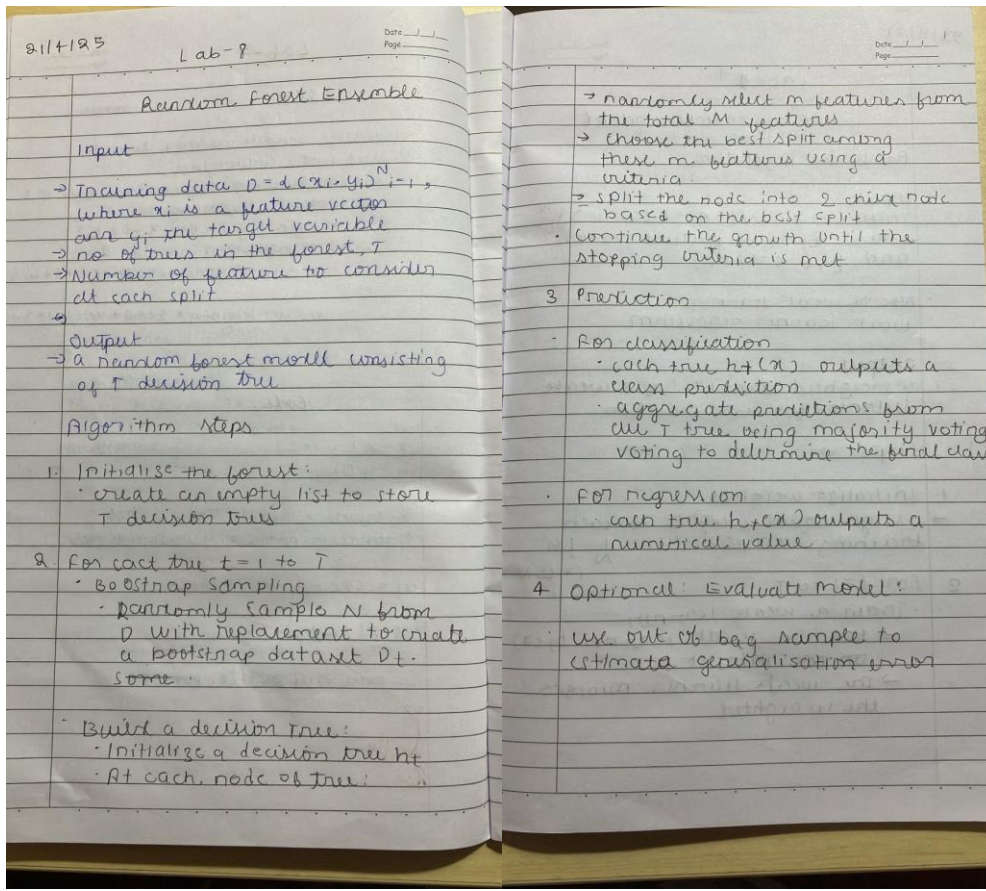 21/4/25
Lab-8
Date __/__/__
Page ______
Random Forest Ensemble
Input
→ Training data D = {(xi, yi)}^N i=1,
where xi is a feature vector
and yi the target variable
→ no of trees in the forest, T
→ Number of feature to consider
at each split
Output
→ a random forest modll consisting
of T decision tree
Algorithm steps
1. Initialise the forest:
· create an empty list to store
T decision trees
2. For eact tree t = 1 to T
· Bootstrap Sampling
· Randomly sample N from
D with replacement to create
a bootstrap dataset Dt.
some.
· Build a decision Tree:
· Initialize a decision tree ht
· At each node of tree:
Date __/__/__
Page ______
→ randomly select m features from
the total M features
→ choose the best split among
these m features using a
criteria.
→ split the node into 2 child node
based on the best split
· Continue the growth until the
stopping criteria is met
3 Prediction
· For classification
· each tree ht(x) outputs a
class prediction
· aggregate predictions from
all T tree using majority voting
voting to determine the final class
· For regression
· each tree ht(x) outputs a
numerical value
4 Optional: Evaluate model:
· use out of bag sample to
estimata generalisation error